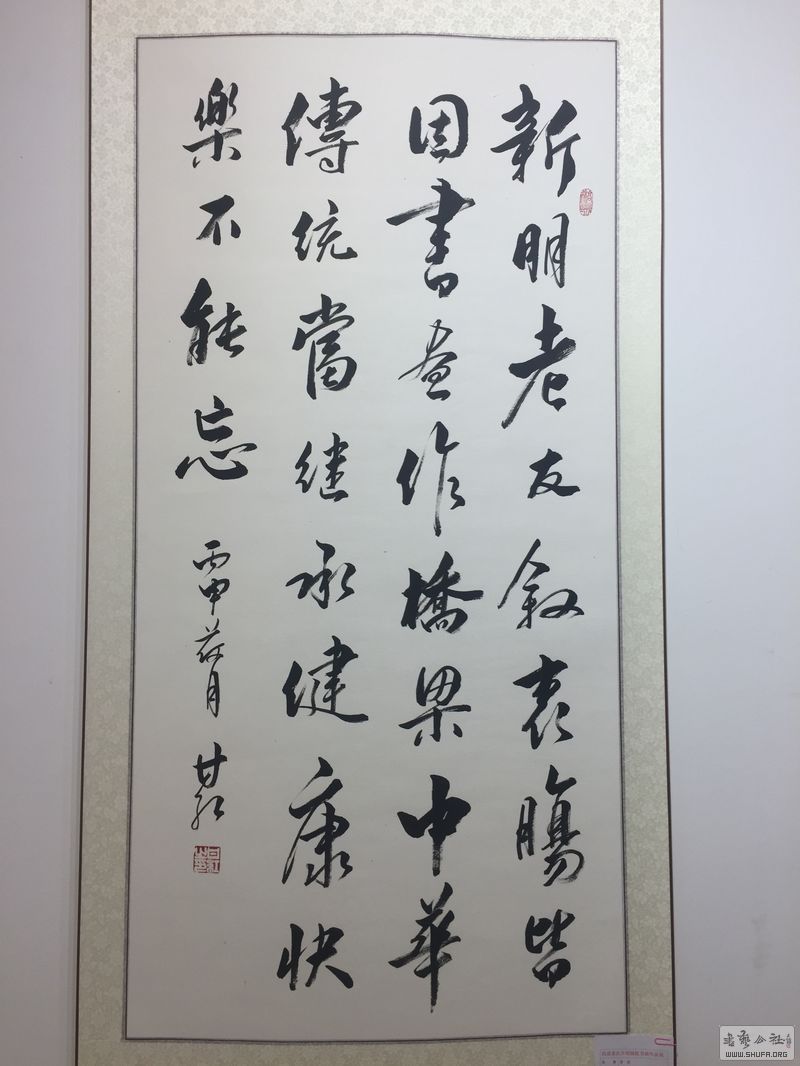 新朋老友叙衷腸皆
因書画作橋梁中華
傳統當继承健康快
樂不能忘
丙申荷月 甘紅
書艺公社
WWW.SHUFA.ORG